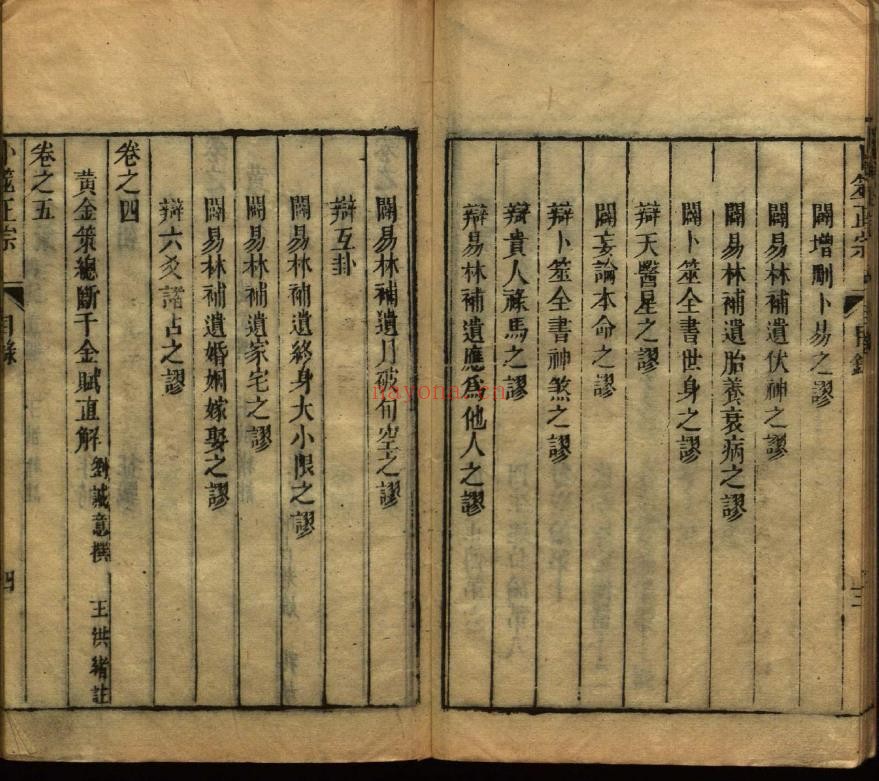 闢增刪卜易之謬
闢易林補遺伏神之謬
闢易林補遺胎養衰病之謬
闢卜筮全書世身之謬
辯天醫星之謬
闢妄論本命之謬
辯卜筮全書神煞之謬
辯貴人祿馬之謬
辯易林補遺應爲他人之謬
闢易林補遺月破旬空之謬
辯互卦
闢易林補遺終身大小限之謬
闢易林補遺家宅之謬
闢易林補遺婚姻嫁娶之謬
辯六爻諸占之謬
卷之四
黃金策總斷千金賦直解 劉誠意撰 王洪緒註
卷之五
卜筮正宗 目錄 四
nayona.cn